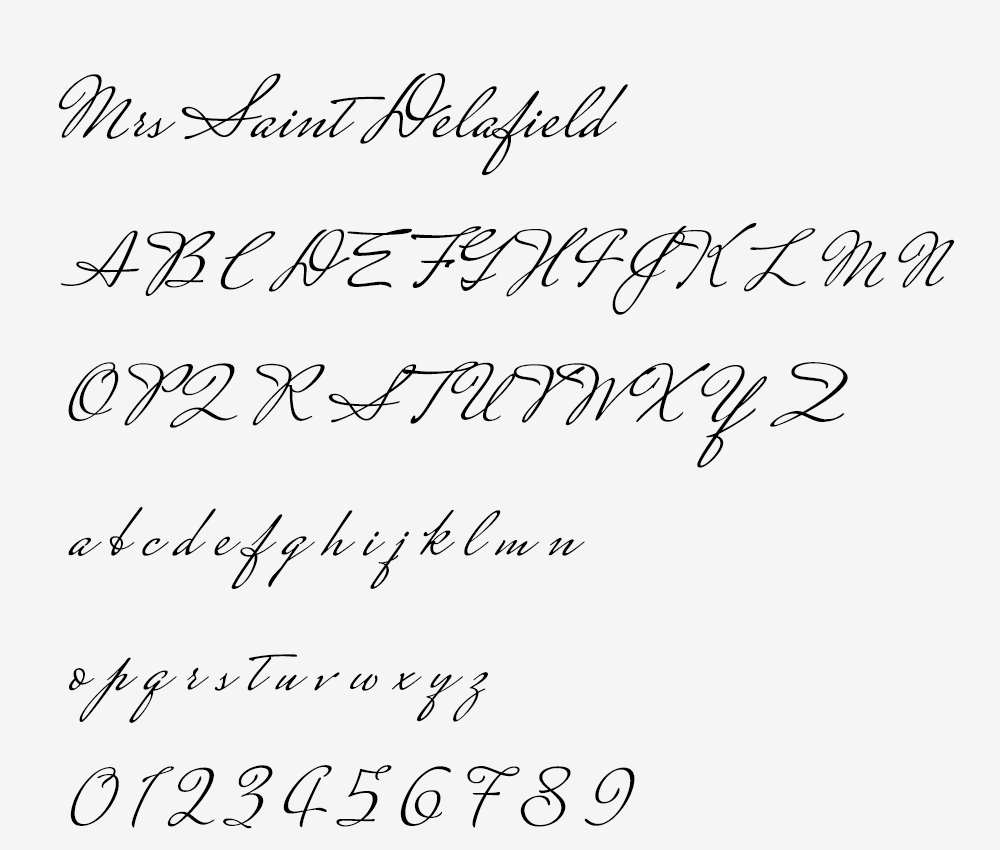 Mrs Saint Delafield
A B C D E F G H I J K L M N
O P Q R S T U V W X Y Z
a b c d e f g h i j k l m n
o p q r s t u v w x y z
0 1 2 3 4 5 6 7 8 9